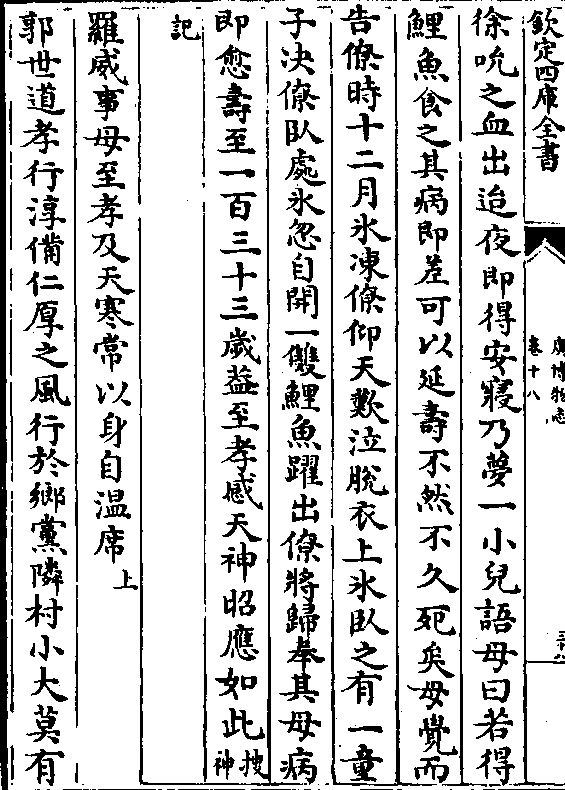 欽定四庫全書
廣博物志
卷十八
徐吮之血出迨夜即得安寢乃夢一小兒語母曰若得
鯉魚食之其病即差可以延壽不然不久死矣母覺而
告僚時十二月氷凍僚仰天歎泣脫衣上氷臥之有一童
子決僚臥處氷忽自開一雙鯉魚躍出僚將歸奉其母病
即愈壽至一百三十三歲葢至孝感天神昭應如此搜神
記
羅威事母至孝及天寒常以身自温席上
郭世道孝行淳備仁厚之風行於鄉黨隣村小大莫有